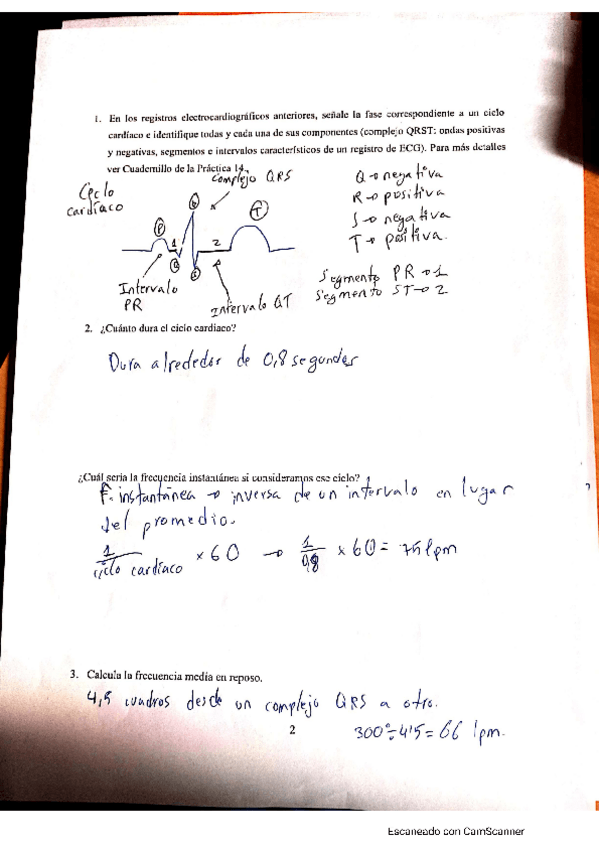 1. En los registros electrocardiográficos anteriores, señale la fase correspondiente a un ciclo
cardíaco e identifique todas y cada una de sus componentes (complejo QRST: ondas positivas
y negativas, segmentos e intervalos característicos de un registro de ECG). Para más detalles
ver Cuadernillo de la Práctica 14.
Ciclo
cardíaco
Complejo QRS
P
R
T
1
2
Q
S
Intervalo
PR
Intervalo QT
Q → negativa
R → positiva
S → negativa
T → positiva.
Segmento PR → 1
Segmento ST → 2
2. ¿Cuánto dura el ciclo cardiaco?
Dura alrededor de 0,8 segundos
¿Cuál sería la frecuencia instantánea si consideramos ese ciclo?
F. instantánea → inversa de un intervalo en lugar
del promedio.
1/ciclo cardíaco × 60 → 1/0,8 × 60 = 75 lpm
3. Calcula la frecuencia media en reposo.
4,5 cuadros desde un complejo QRS a otro.
300 ÷ 4'5 = 66 lpm.
2
Escaneado con CamScanner